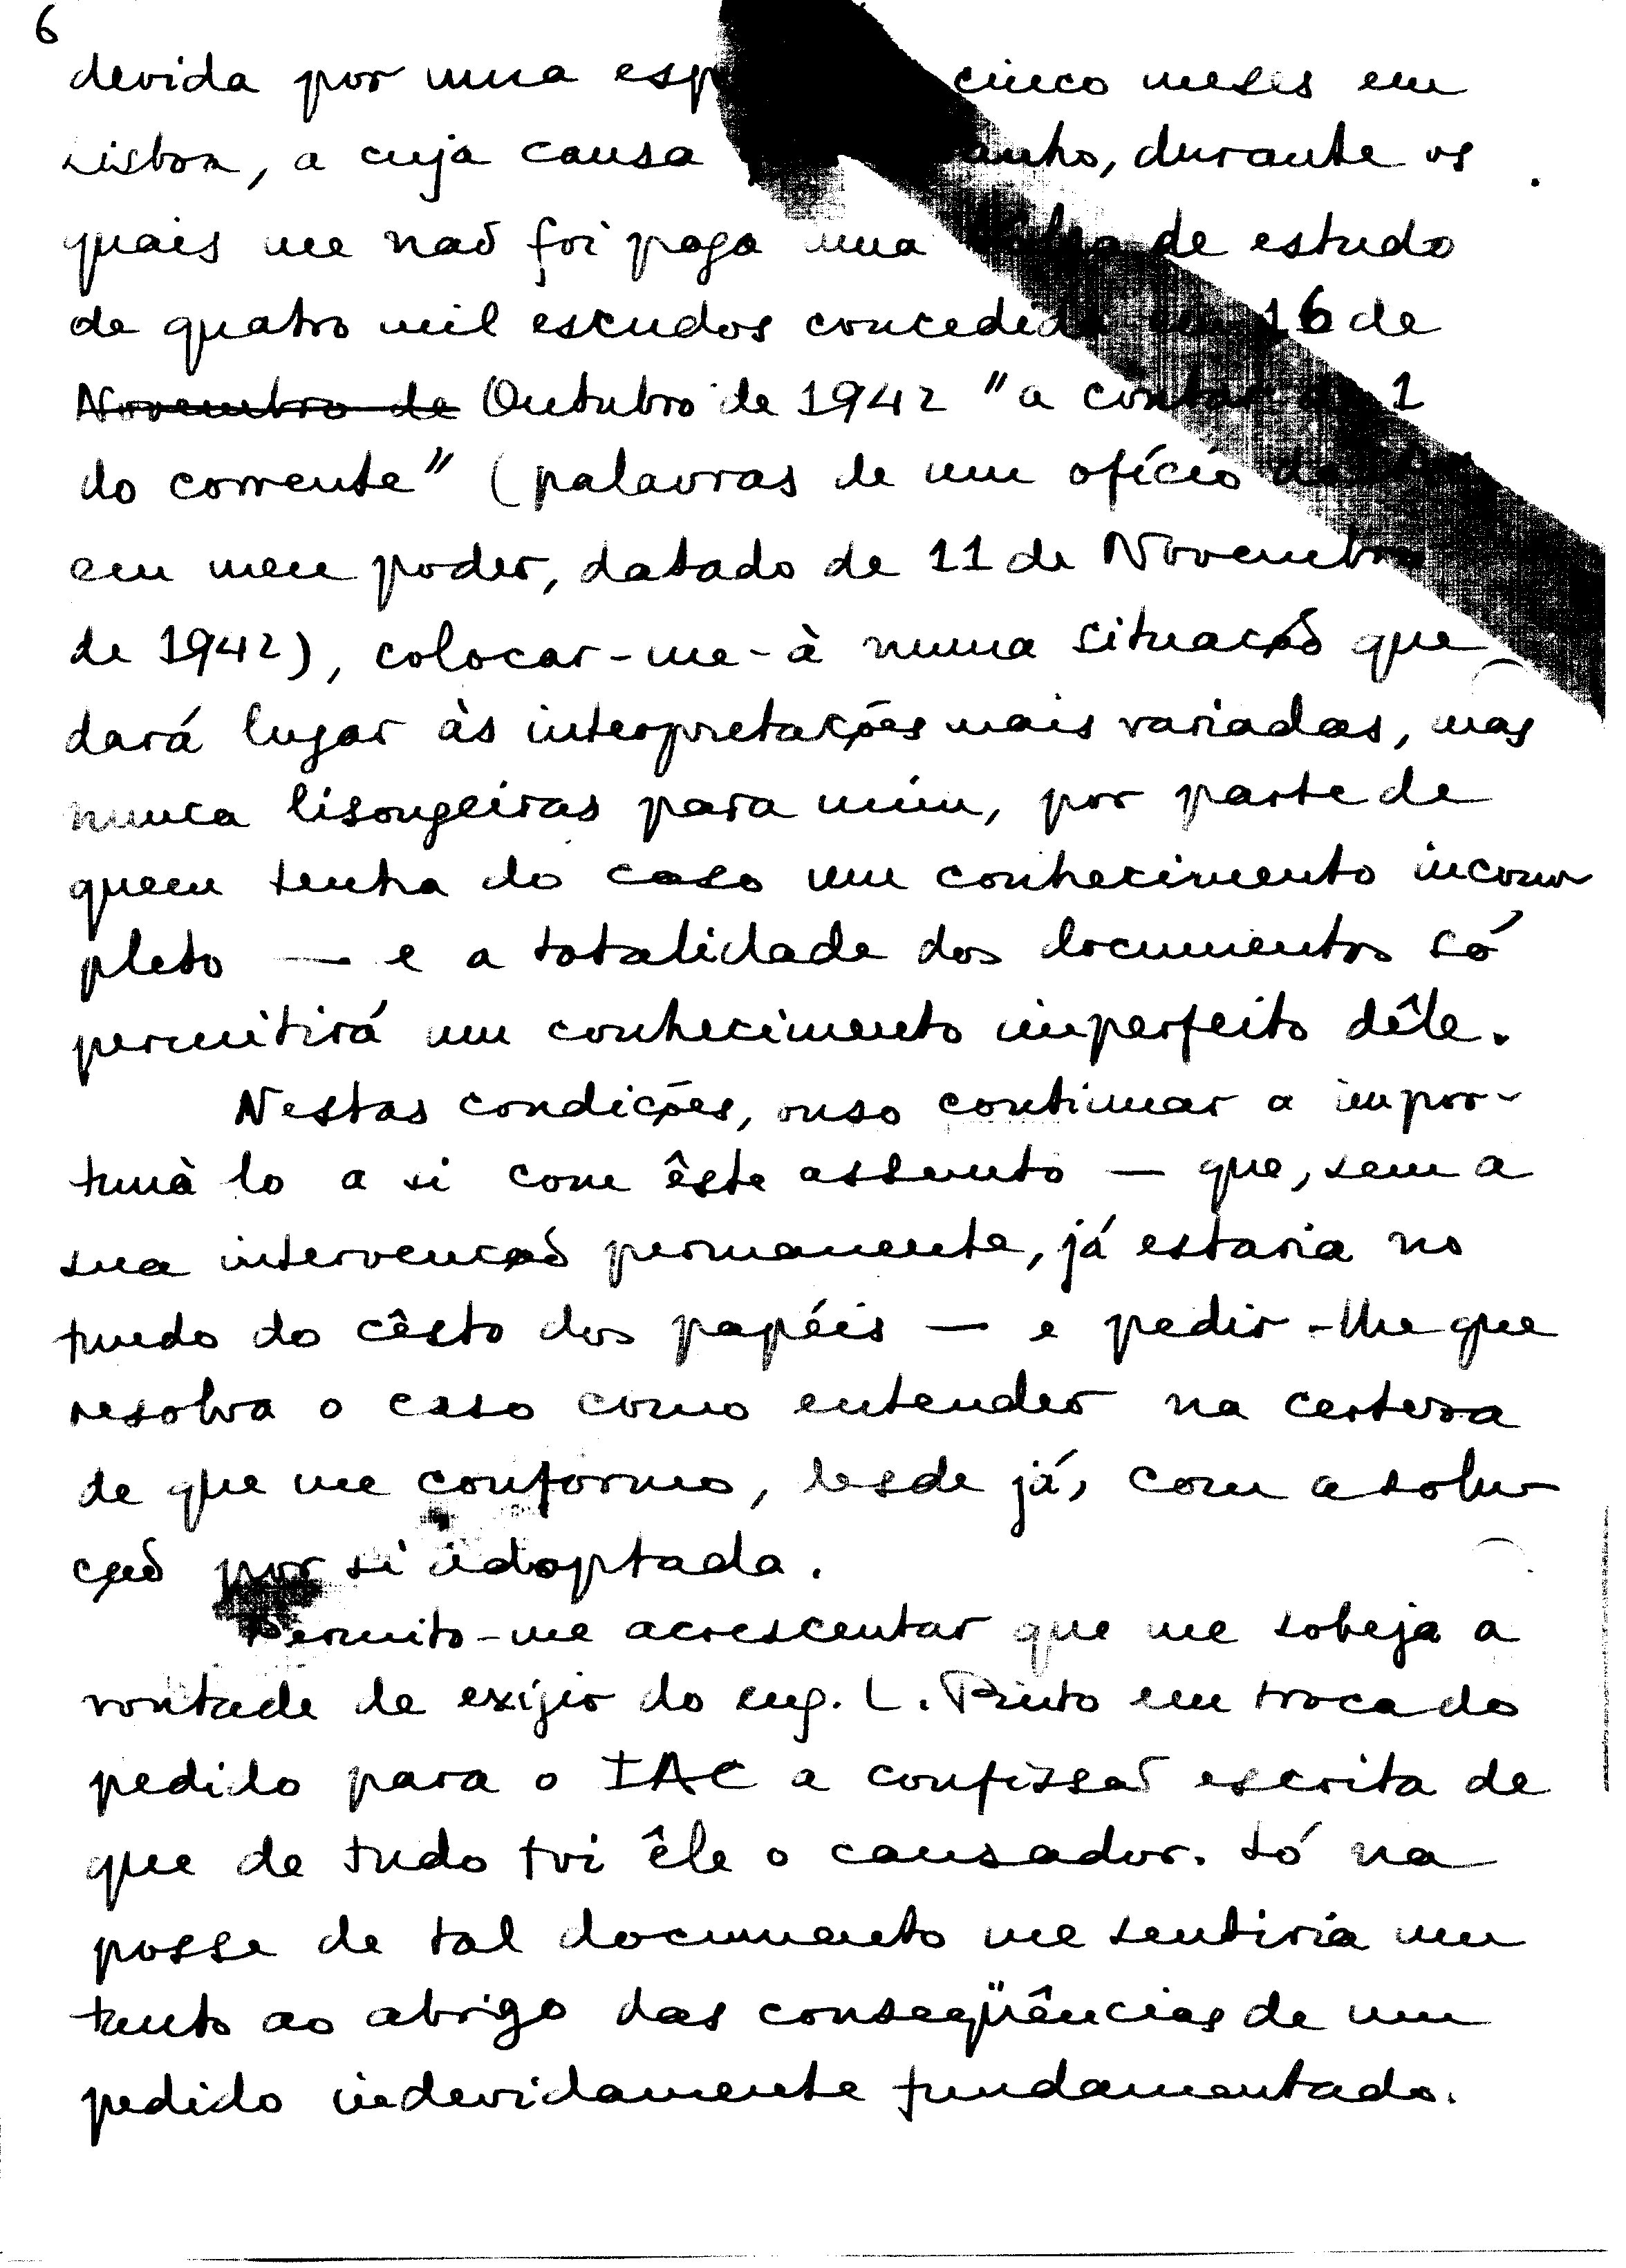 6
devida por uma esp cinco meses em
Lisboa, a cuja causa anho, durante os
quais me não foi paga uma de estudo
de quatro mil escudos concedida em 16 de
Novembro de Outubro de 1942 "a contar de 1
do corrente" (palavras de um ofício
em meu poder, datado de 11 de Novembro
de 1942), colocar-me-à numa situação que
dará lugar às interpretações mais variadas, mas
nunca lisongeiras para mim, por parte de
quem tenha do caso um conhecimento incom
pleto — e a totalidade dos documentos só
permitirá um conhecimento imperfeito dêle.
Nestas condições, ouso continuar a impor-
tunà lo a si com êste assunto — que, sem a
sua intervenção permanente, já estaria no
fundo do cêsto dos papéis — e pedir-lhe que
resolva o caso como entender na certeza
de que me conformo, desde já, com a solu-
ção por si adoptada.
Permito-me acrescentar que me sobeja a
vontade de exigir do eng. L. Pinto em troca do
pedido para o IAC a confissão escrita de
que de tudo foi êle o causador. Só na
posse de tal documento me sentiria um
tanto ao abrigo das conseqüências de um
pedido indevidamente fundamentado.